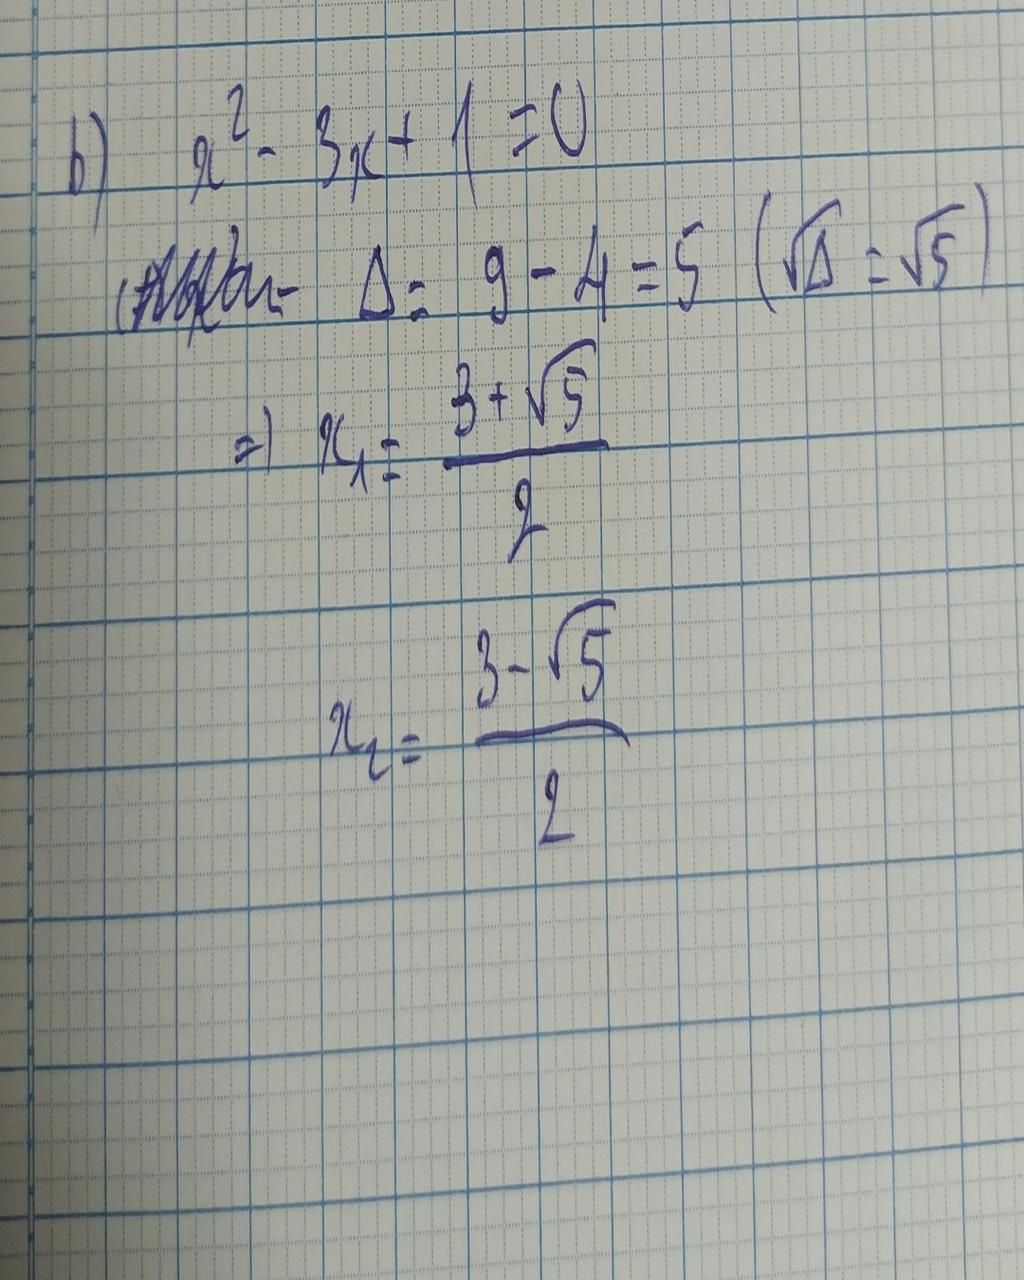 b) x² - 3x + 1 = 0
Δ = 9 - 4 = 5 (√Δ = √5)
=) x₁ = (3 + √5) / 2
x₂ = (3 - √5) / 2